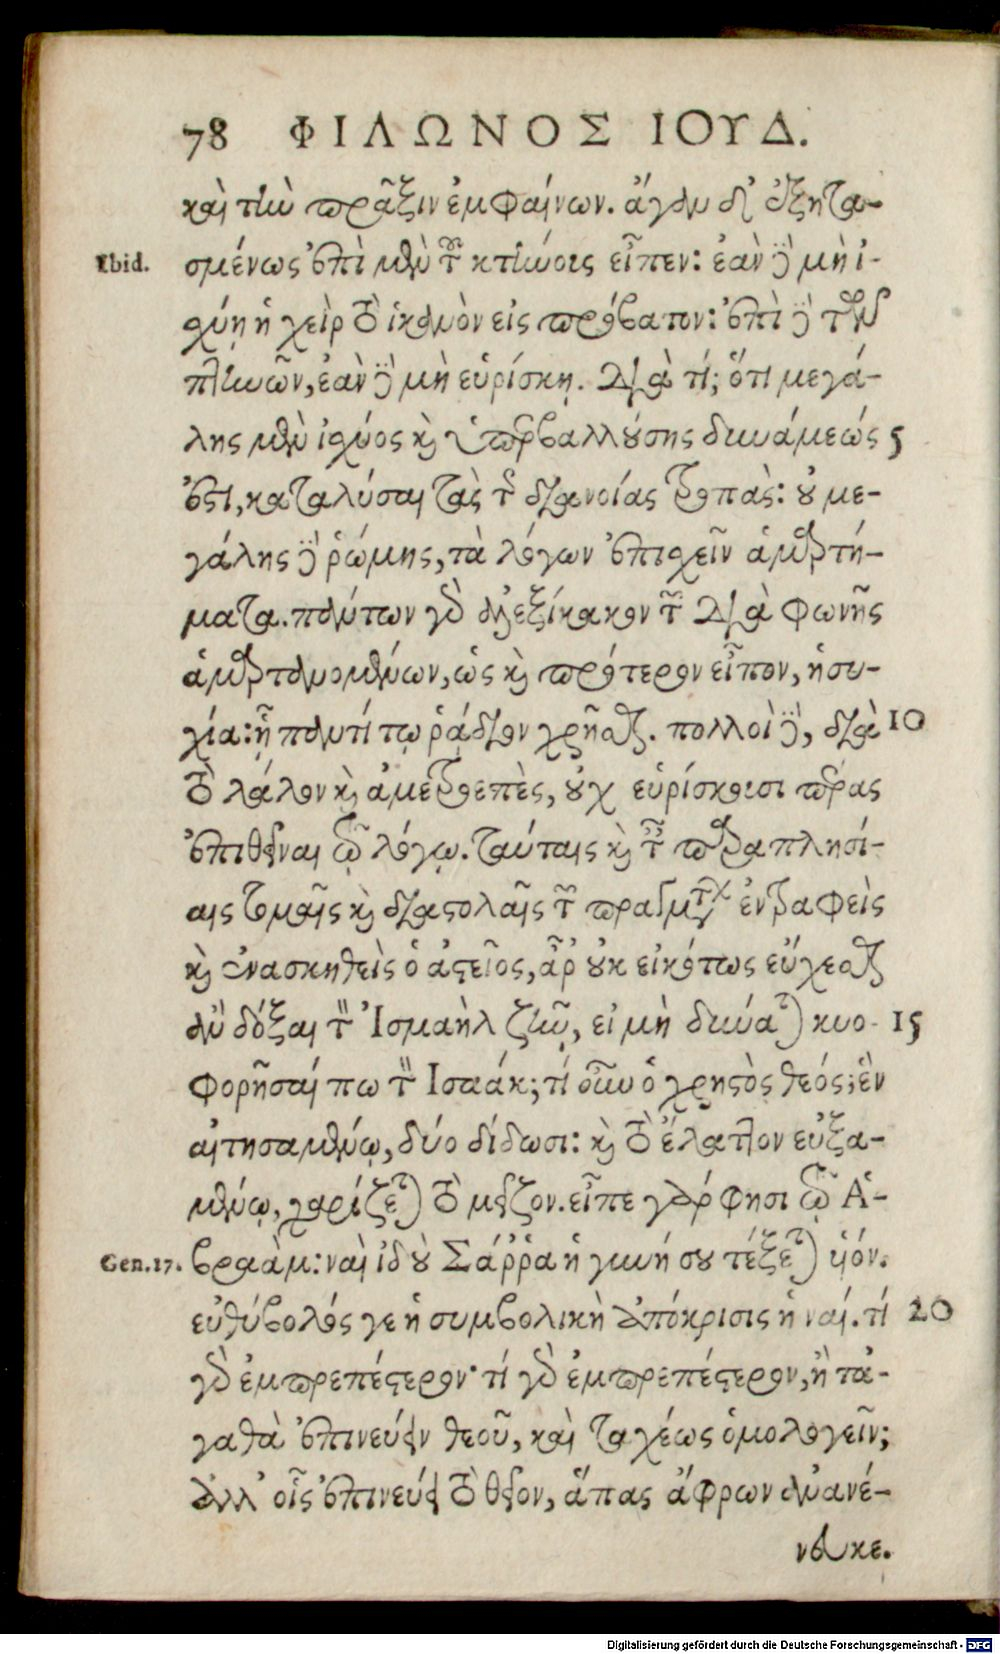 78 ΦΙΛΩΝΟΣ ΙΟΥΔ.
καὶ τὴν πρᾶξιν ἐμφαίνων. ἄγαν δ' ἐξητα-
Ibid. σμένως ἐπὶ μὲν τῶν κτηνῶν εἶπεν: ἐὰν δὲ μὴ ἰ-
σχύῃ ἡ χεὶρ τὸ ἱκανὸν εἰς πρόβατον: ἐπὶ δὲ τῶν
πτηνῶν, ἐὰν δὲ μὴ εὑρίσκῃ. Διὰ τί; ὅτι μεγά-
λης μὲν ἰσχύος καὶ ὑπερβαλλούσης δυνάμεώς 5
ἐστι, καταλύσαι τὰς τῆς διανοίας τροπὰς: οὐ με-
γάλης δὲ ῥώμης, τὰ λόγων ἐπισχεῖν ἁμαρτή-
ματα. πάντων γὰρ ἀλεξίκακον τῶν Διὰ φωνῆς
ἁμαρτανομένων, ὡς καὶ πρότερον εἶπον, ἡσυ-
χία: ᾗ παντί τῳ ῥᾴδιον χρῆσθαι. πολλοὶ δὲ, διὰ 10
τὸ λάλον καὶ ἀμετροεπὲς, οὐχ εὑρίσκουσι πέρας
ἐπιθεῖναι τῷ λόγῳ. ταύταις καὶ ταῖς παραπλησί-
αις τομαῖς καὶ διαστολαῖς τῶν πραγμάτων ἐντραφεὶς
καὶ ἐνασκηθεὶς ὁ ἀστεῖος, ἆρ' οὐκ εἰκότως εὔχεσθαι
ἂν δόξαι τὸν Ἰσμαὴλ ζῆν, εἰ μὴ δύναται κυο- 15
φορῆσαί πω τὸν Ισαάκ; τί οὖν ὁ χρηστὸς θεός; ἓν
αἰτησαμένῳ, δύο δίδωσι: καὶ τὸ ἔλαττον εὐξα-
μένῳ, χαρίζεται τὸ μεῖζον. εἶπε γάρ φησι τῷ Ἀ-
Gen.17. βραὰμ: ναὶ ἰδοὺ Σάῤῥα ἡ γυνή σου τέξεται υἱόν.
εὐθύβολός γε ἡ συμβολικὴ ἀπόκρισις ἡ ναί. τί 20
γὰρ ἐμπρεπέστερον· τί γὰρ ἐμπρεπέστερον, ἢ τἀ-
γαθὰ ἐπινεύειν θεοῦ, καὶ ταχέως ὁμολογεῖν;
ἀλλ' οἷς ἐπινεύει τὸ θεῖον, ἅπας ἄφρων ἀνανέ-
νευκε.
Digitalisierung gefördert durch die Deutsche Forschungsgemeinschaft - DFG